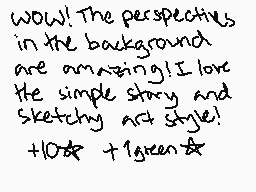 WOW! The perspectives
in the background
are amazing! I love
the simple story and
sketchy art style!
+10☆ +1green☆